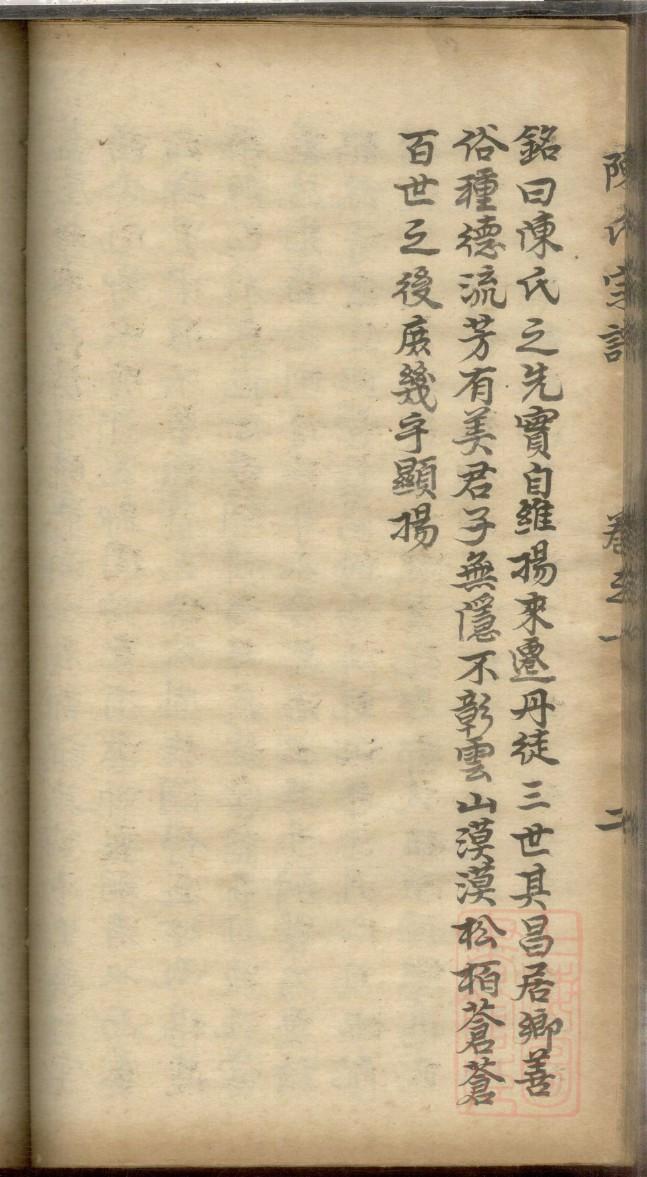 陳氏宗譜 卷之一 二
銘曰陳氏之先實自維揚來遷丹徒三世其昌居鄉善
俗種德流芳有美君子無隱不彰雲山漠漠松栢蒼蒼
百世之後庻幾乎顯揚